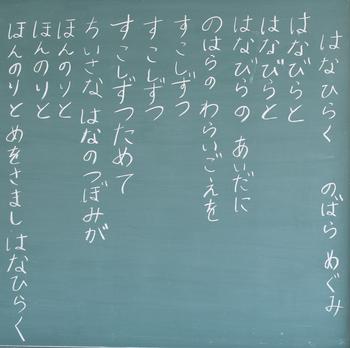 はなひらく　のばら めぐみ
はなびらと
はなびらと
はなびらの あいだに
のはらの わらいごえを
すこしずつ
すこしずつ
すこしずつためて
ちいさな はなのつぼみが
ほんのりと
ほんのりと
ほんのりとめをさまし はなひらく